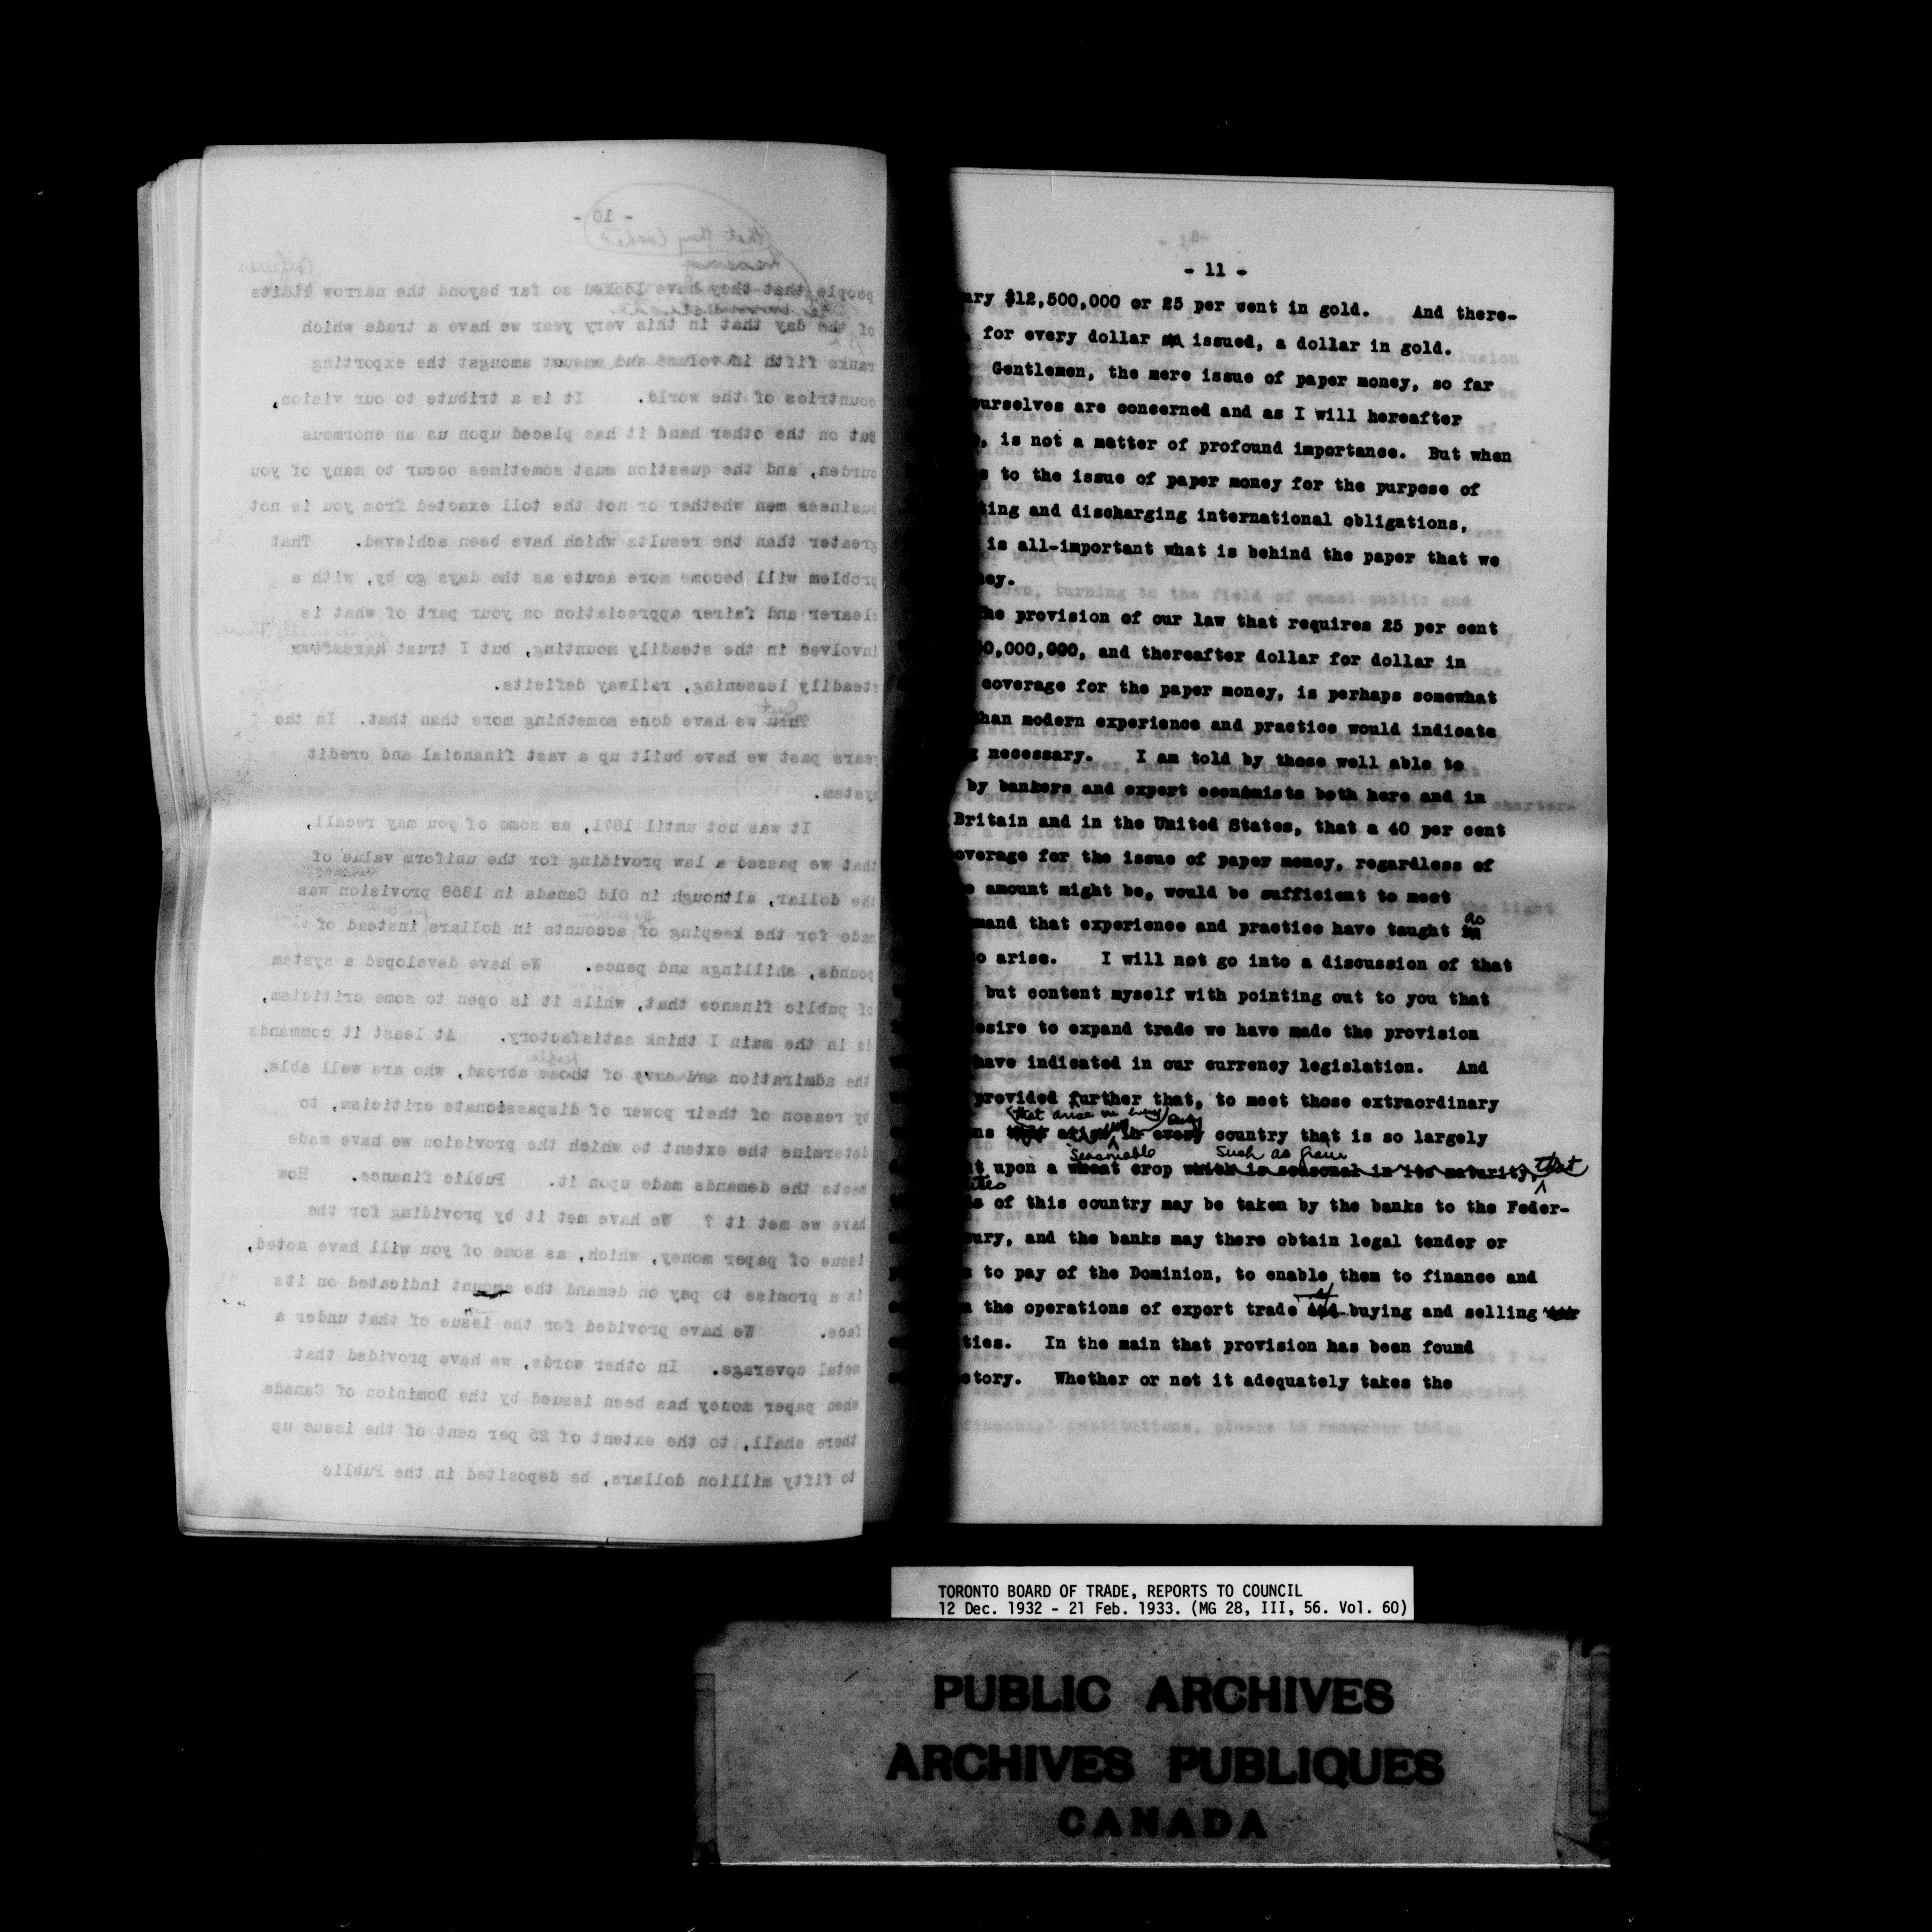 - 10 -
people that they have looked so far beyond the narrow limits
of the day that in this very year we have a trade which
ranks fifth in volume and amount amongst the exporting
countries of the world. It is a tribute to our vision,
But on the other hand it has placed upon us an enormous
burden, and the question must sometimes occur to many of you
business men whether or not the toll exacted from you is not
greater than the results which have been achieved. That
problem will become more acute as the days go by, with a
clearer and fairer appreciation on your part of what is
involved in the steadily mounting, but I trust hereafter
steadily lessening, railway deficits.
Then we have done something more than that. In the
years past we have built up a vast financial and credit
system.
It was not until 1871, as some of you may recall,
that we passed a law providing for the uniform value of
the dollar, although in Old Canada in 1858 provision was
made for the keeping of accounts in dollars instead of
pounds, shillings and pence. We have developed a system
of public finance that, while it is open to some criticism,
is in the main I think satisfactory. At least it commands
people
the admiration and envy of those abroad, who are well able,
by reason of their power of dispassionate criticism, to
determine the extent to which the provision we have made
meets the demands made upon it. Public finance. How
have we met it ? We have met it by providing for the
issue of paper money, which, as some of you will have noted,
is a promise to pay on demand the amount indicated on its
face. We have provided for the issue of that under a
metal coverage. In other words, we have provided that
when paper money has been issued by the Dominion of Canada
there shall, to the extent of 25 per cent of the issue up
to fifty million dollars, be deposited in the Public
- 11 -
ary $12,500,000 or 25 per cent in gold. And there-
for every dollar issued, a dollar in gold.
Gentlemen, the mere issue of paper money, so far
ourselves are concerned and as I will hereafter
, is not a matter of profound importance. But when
s to the issue of paper money for the purpose of
ting and discharging international obligations,
is all-important what is behind the paper that we
ney.
he provision of our law that requires 25 per cent
0,000,000, and thereafter dollar for dollar in
coverage for the paper money, is perhaps somewhat
than modern experience and practice would indicate
g necessary. I am told by those well able to
by bankers and expert economists both here and in
Britain and in the United States, that a 40 per cent
overage for the issue of paper money, regardless of
e amount might be, would be sufficient to meet
as
mand that experience and practice have taught
o arise. I will not go into a discussion of that
but content myself with pointing out to you that
esire to expand trade we have made the provision
have indicated in our currency legislation. And
provided further that, to meet those extraordinary
that arise in every
ns that arise in every country that is so largely
Seasonable such as grain
t upon a wheat crop which is seasonal in its maturity, that
s of this country may be taken by the banks to the Feder-
ury, and the banks may there obtain legal tender or
s to pay of the Dominion, to enable them to finance and
of
n the operations of export trade and buying and selling
ties. In the main that provision has been found
ctory. Whether or not it adequately takes the
TORONTO BOARD OF TRADE, REPORTS TO COUNCIL
12 Dec. 1932 - 21 Feb. 1933. (MG 28, III, 56. Vol. 60)
PUBLIC ARCHIVES
ARCHIVES PUBLIQUES
CANADA